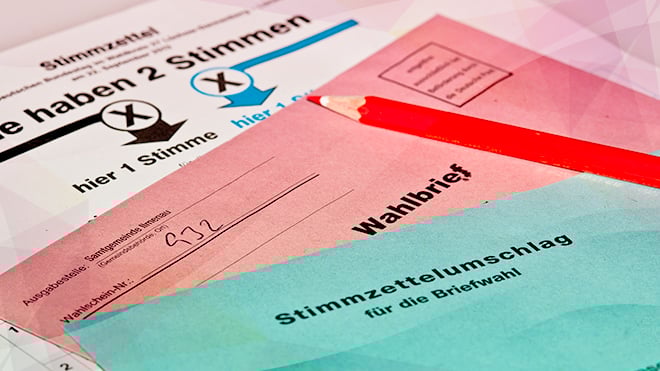 Stimmzettel
am 22. September 2013
e haben 2 Stimmen
X
X
hier 1 Stimme
hier 1
Wahlbrief
Ausgabestelle: Samtgemeinde Ilmenau
(Gemeindebehörde, Ort)
932
Wahlschein-Nr.:
Stimmzettelumschlag
für die Briefwahl
1
2